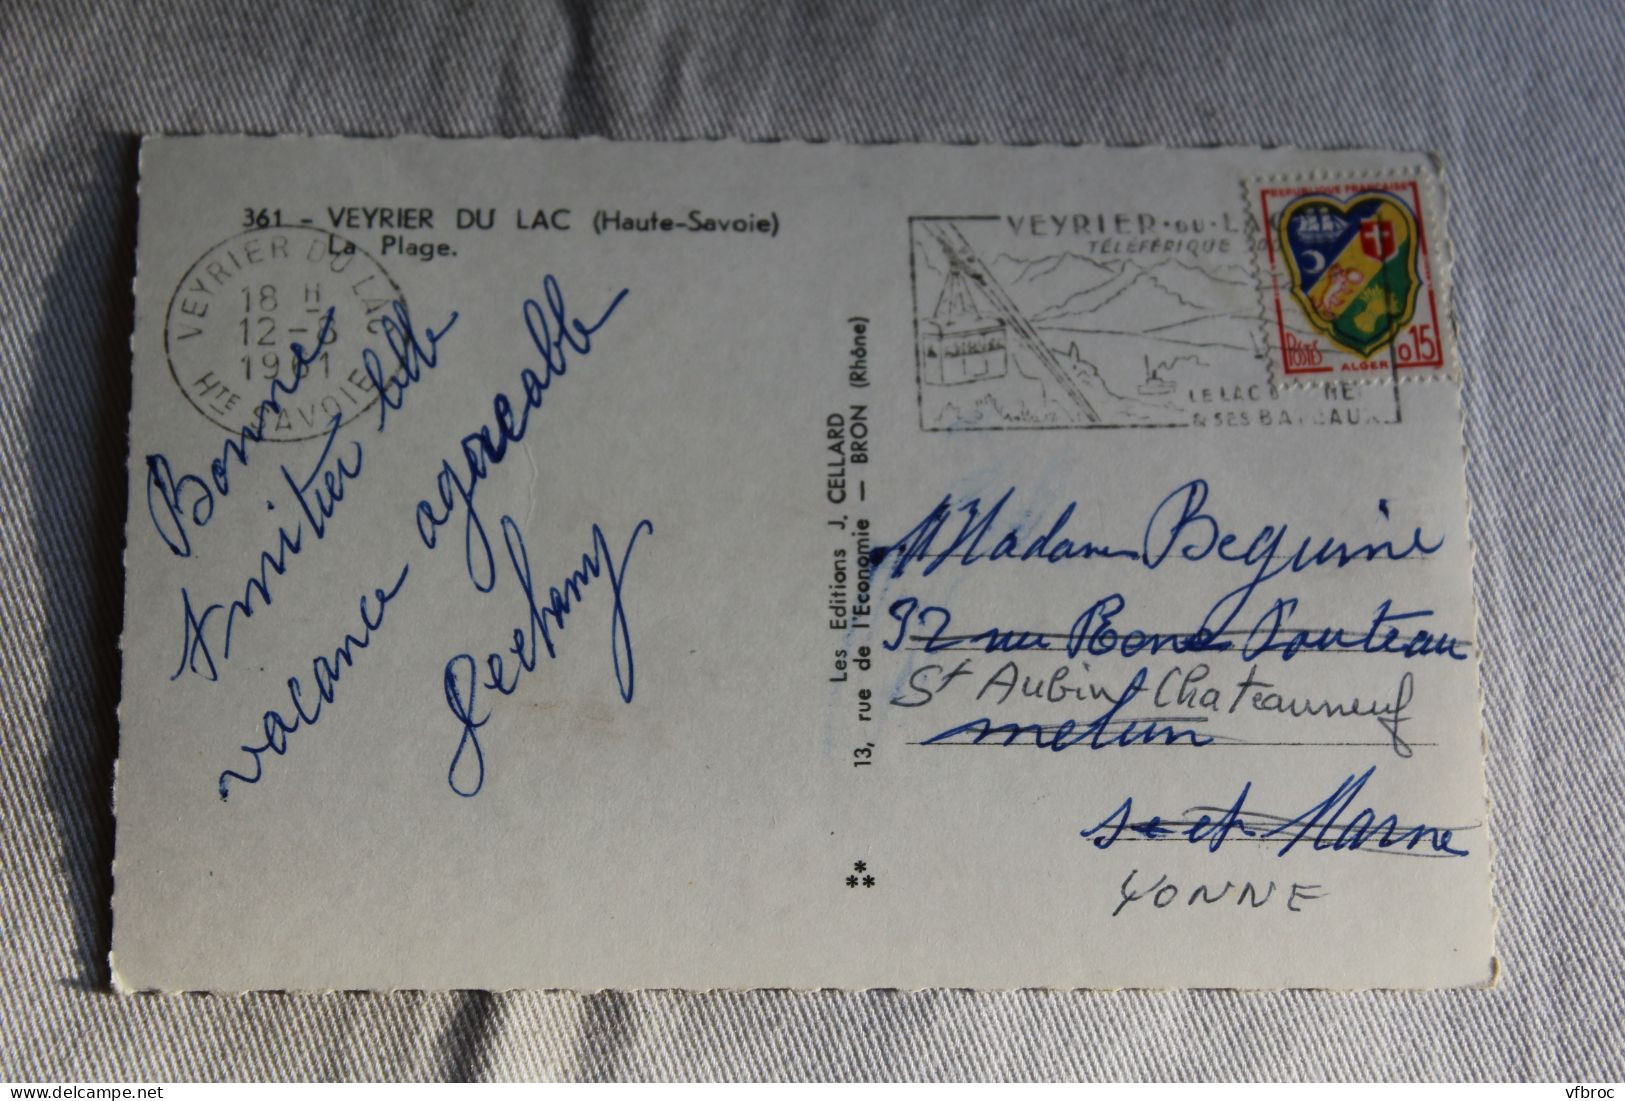 361 - VEYRIER DU LAC (Haute-Savoie)
La Plage.
VEYRIER DU LAC
18 H
12 - 8
1961
Hte SAVOIE
Bonne
Amitier
vacance agreeable
Les Editions J. CELLARD
13, rue de l'Economie — BRON (Rhône)
VEYRIER·DU·LAC
TÉLÉFÉRIQUE
LE LAC
& SES BATEAUX
REPUBLIQUE FRANÇAISE
POSTES
ALGER
0,15
Madame Beguine
92 rue
St Aubin Chateauneuf
melun
s et Marne
YONNE
vfbroc
www.delcampe.net